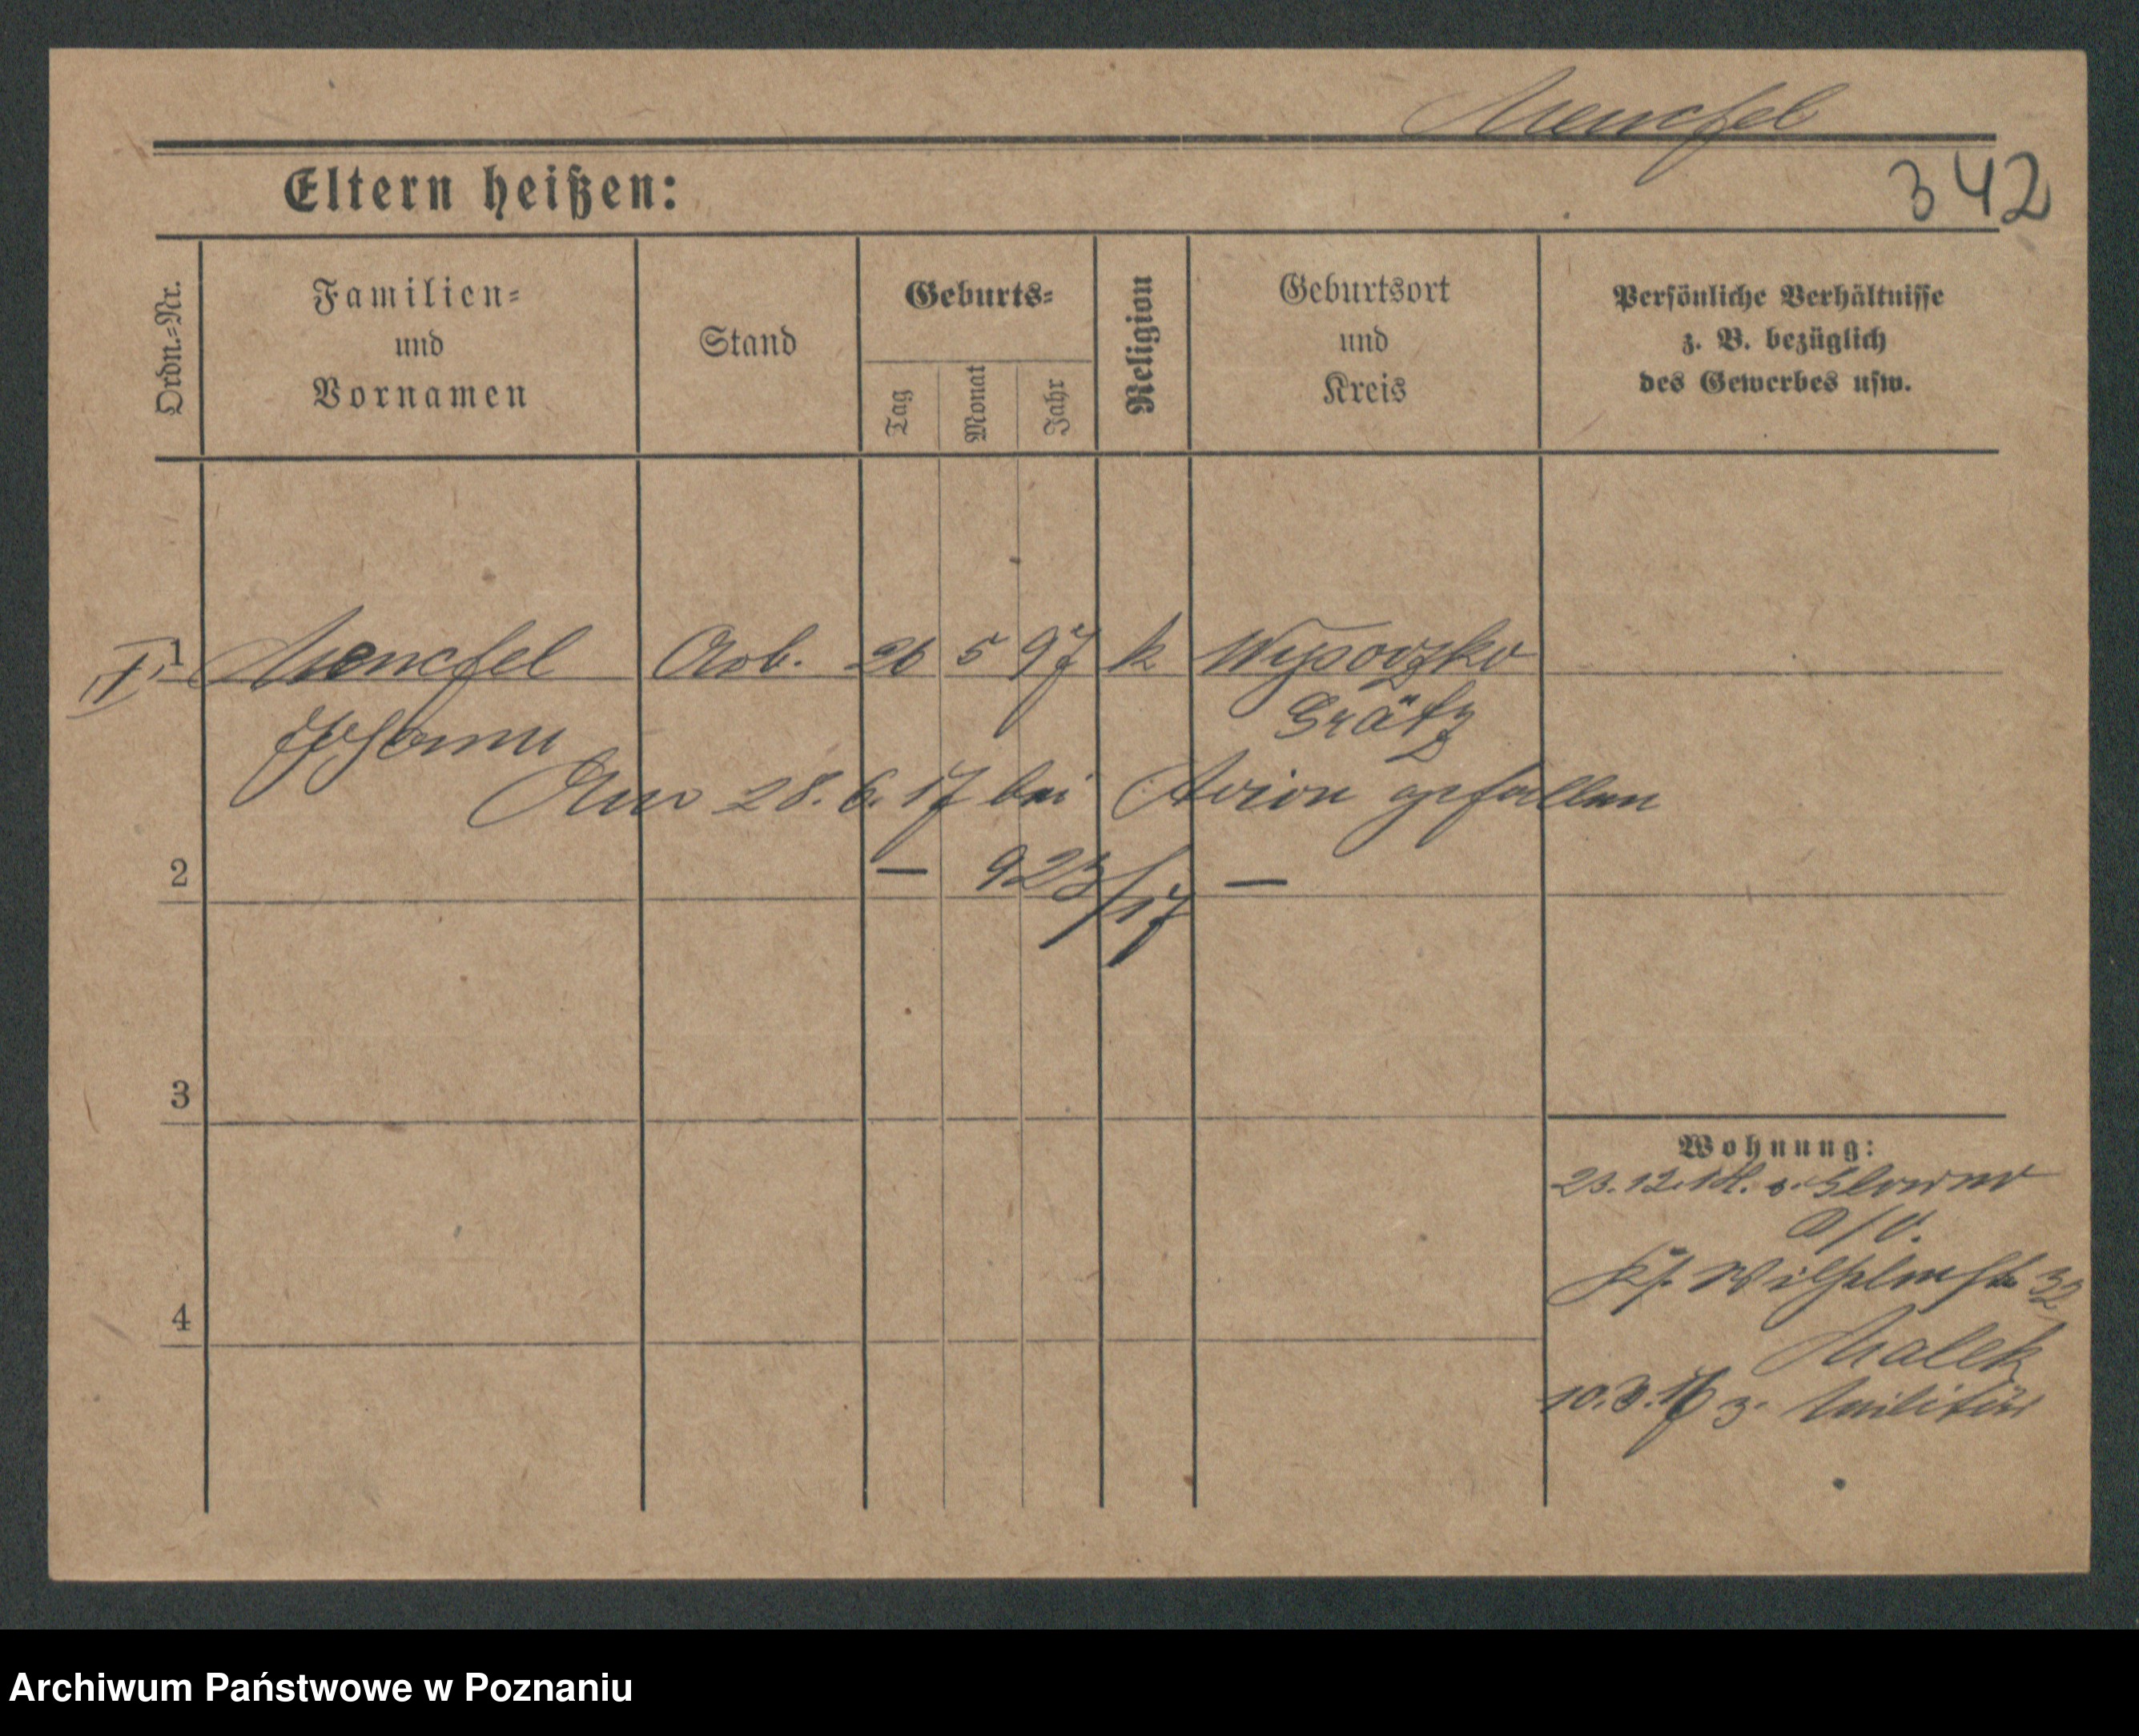 Mencfel
342
Eltern heißen:
Ordn.-Nr.
Familien-
und
Vornamen
Stand
Geburts-
Tag
Monat
Jahr
Religion
Geburtsort
und
Kreis
Persönliche Verhältnisse
z. B. bezüglich
des Gewerbes usw.
1 Mencfel Arb. 26 5 97 k Wysoczko
Johann Grätz
Am 28.6.17 bei Avion gefallen
2 — 923/17 —
3
Wohnung:
23.12.14. v. Glowno
a/V.
4 Kf. Wilhelmstr 32
Malek
10.3. z. Militär
Archiwum Państwowe w Poznaniu